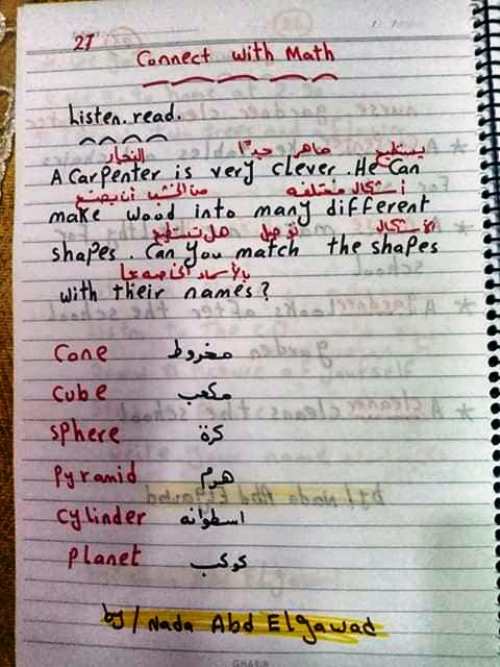 27
Connect with Math
Listen. read.
النجار ماهر جيدًا يستطيع
A Carpenter is very clever. He Can
من الخشب أن يصنع أشكال مختلفه
make wood into many different
هل تستطيع توصيل الأشكال
shapes. Can you match the shapes
بالأسماء الخاصه بها
with their names?
Cone مخروط
Cube مكعب
sphere كرة
pyramid هرم
cylinder اسطوانه
planet كوكب
by/ Nada Abd Elgawad